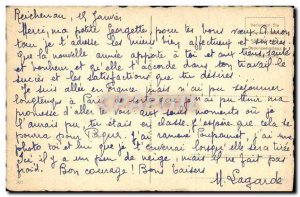 Reichenau, 18 Janvier
Merci, ma petite Georgette pour tes bons vœux. A mon
tour je t'adresse les miens bien affectueux et sincères
Que la nouvelle année apporte à toi et aux tiens, santé
et bonheur et qu'elle t'accorde dans ton travail le
succès et les satisfactions que tu désires.
Je suis allée en France mais n'ai pu séjourner
longtemps à Paris n'ai pu tenir ma
promesse d'aller te voir les quelques moments où je
l'aurais pu, tu étais en classe. J'espère que cela se
pourra pour Pâques. J'ai ramené Poupounet, j'ai une
photo toi et lui que je t'enverrai lorsqu'elle sera tirée
ici il y a un peu de neige, mais il ne fait pas
froid. Bon courage! Bons baisers
M. Lagarde